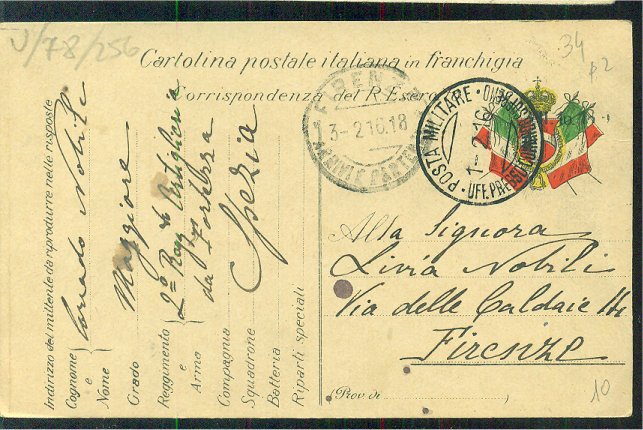 U/78/256
34
p2
Cartolina postale italiana in franchigia
Corrispondenza del R. Eserc
FIRENZE
13-2 16.18
ARRIVI E PARTENZE
POSTA MILITARE
1-2 16
UFF. PRESSO
Indirizzo del mittente da riprodurre nelle risposte
Cognome e Nome
Corrado Nobili
Grado
Maggiore
Reggimento e Arma
2º Regg. Artiglieria
da Fortezza
Compagnia
Spezia
Squadrone
Batteria
Riparti speciali
Alla Signora
Livia Nobili
Via delle Caldaie 14
Firenze
(Prov di )
10